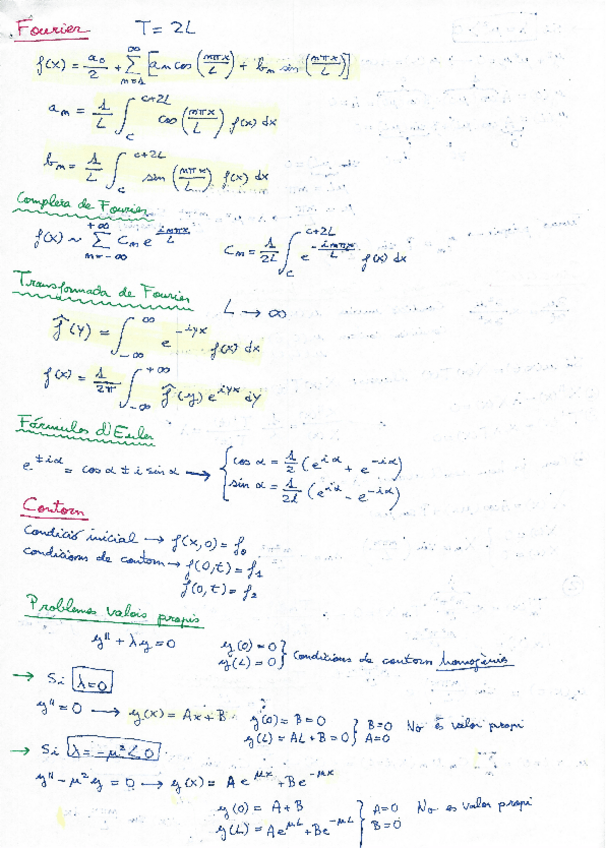 Fourier T = 2L
f(x) = a₀/2 + ∑_{n=1}^{∞} [aₙ cos(nπx/L) + bₙ sin(nπx/L)]
aₙ = 1/L ∫_c^{c+2L} cos(nπx/L) f(x) dx
bₙ = 1/L ∫_c^{c+2L} sin(nπx/L) f(x) dx
Complexa de Fourier
f(x) ~ ∑_{n=-∞}^{+∞} Cₙ e^{inπx/L} Cₙ = 1/2L ∫_c^{c+2L} e^{-inπx/L} f(x) dx
Transformada de Fourier L → ∞
f̂(y) = ∫_{-∞}^{∞} e^{-iyx} f(x) dx
f(x) = 1/2π ∫_{-∞}^{+∞} f̂(y) e^{iyx} dy
Fórmules d'Euler
e^{±iα} = cos α ± i sin α → { cos α = 1/2 (e^{iα} + e^{-iα})
sin α = 1/2i (e^{iα} - e^{-iα})
Contorn
Condició inicial → f(x,0) = f₀
condicions de contorn → f(0,t) = f₁
f(0,t) = f₂
Problemes valors propis
y'' + λy = 0 y(0) = 0
y(L) = 0 } Condicions de contorn homogènies
→ Si λ=0
y'' = 0 → y(x) = Ax + B y(0) = B = 0
y(L) = AL + B = 0 } B=0 A=0 No és valor propi
→ Si λ = -μ² < 0
y'' - μ²y = 0 → y(x) = A e^{μx} + B e^{-μx}
y(0) = A + B
y(L) = A e^{μL} + B e^{-μL} } A=0 B=0 No es valor propi